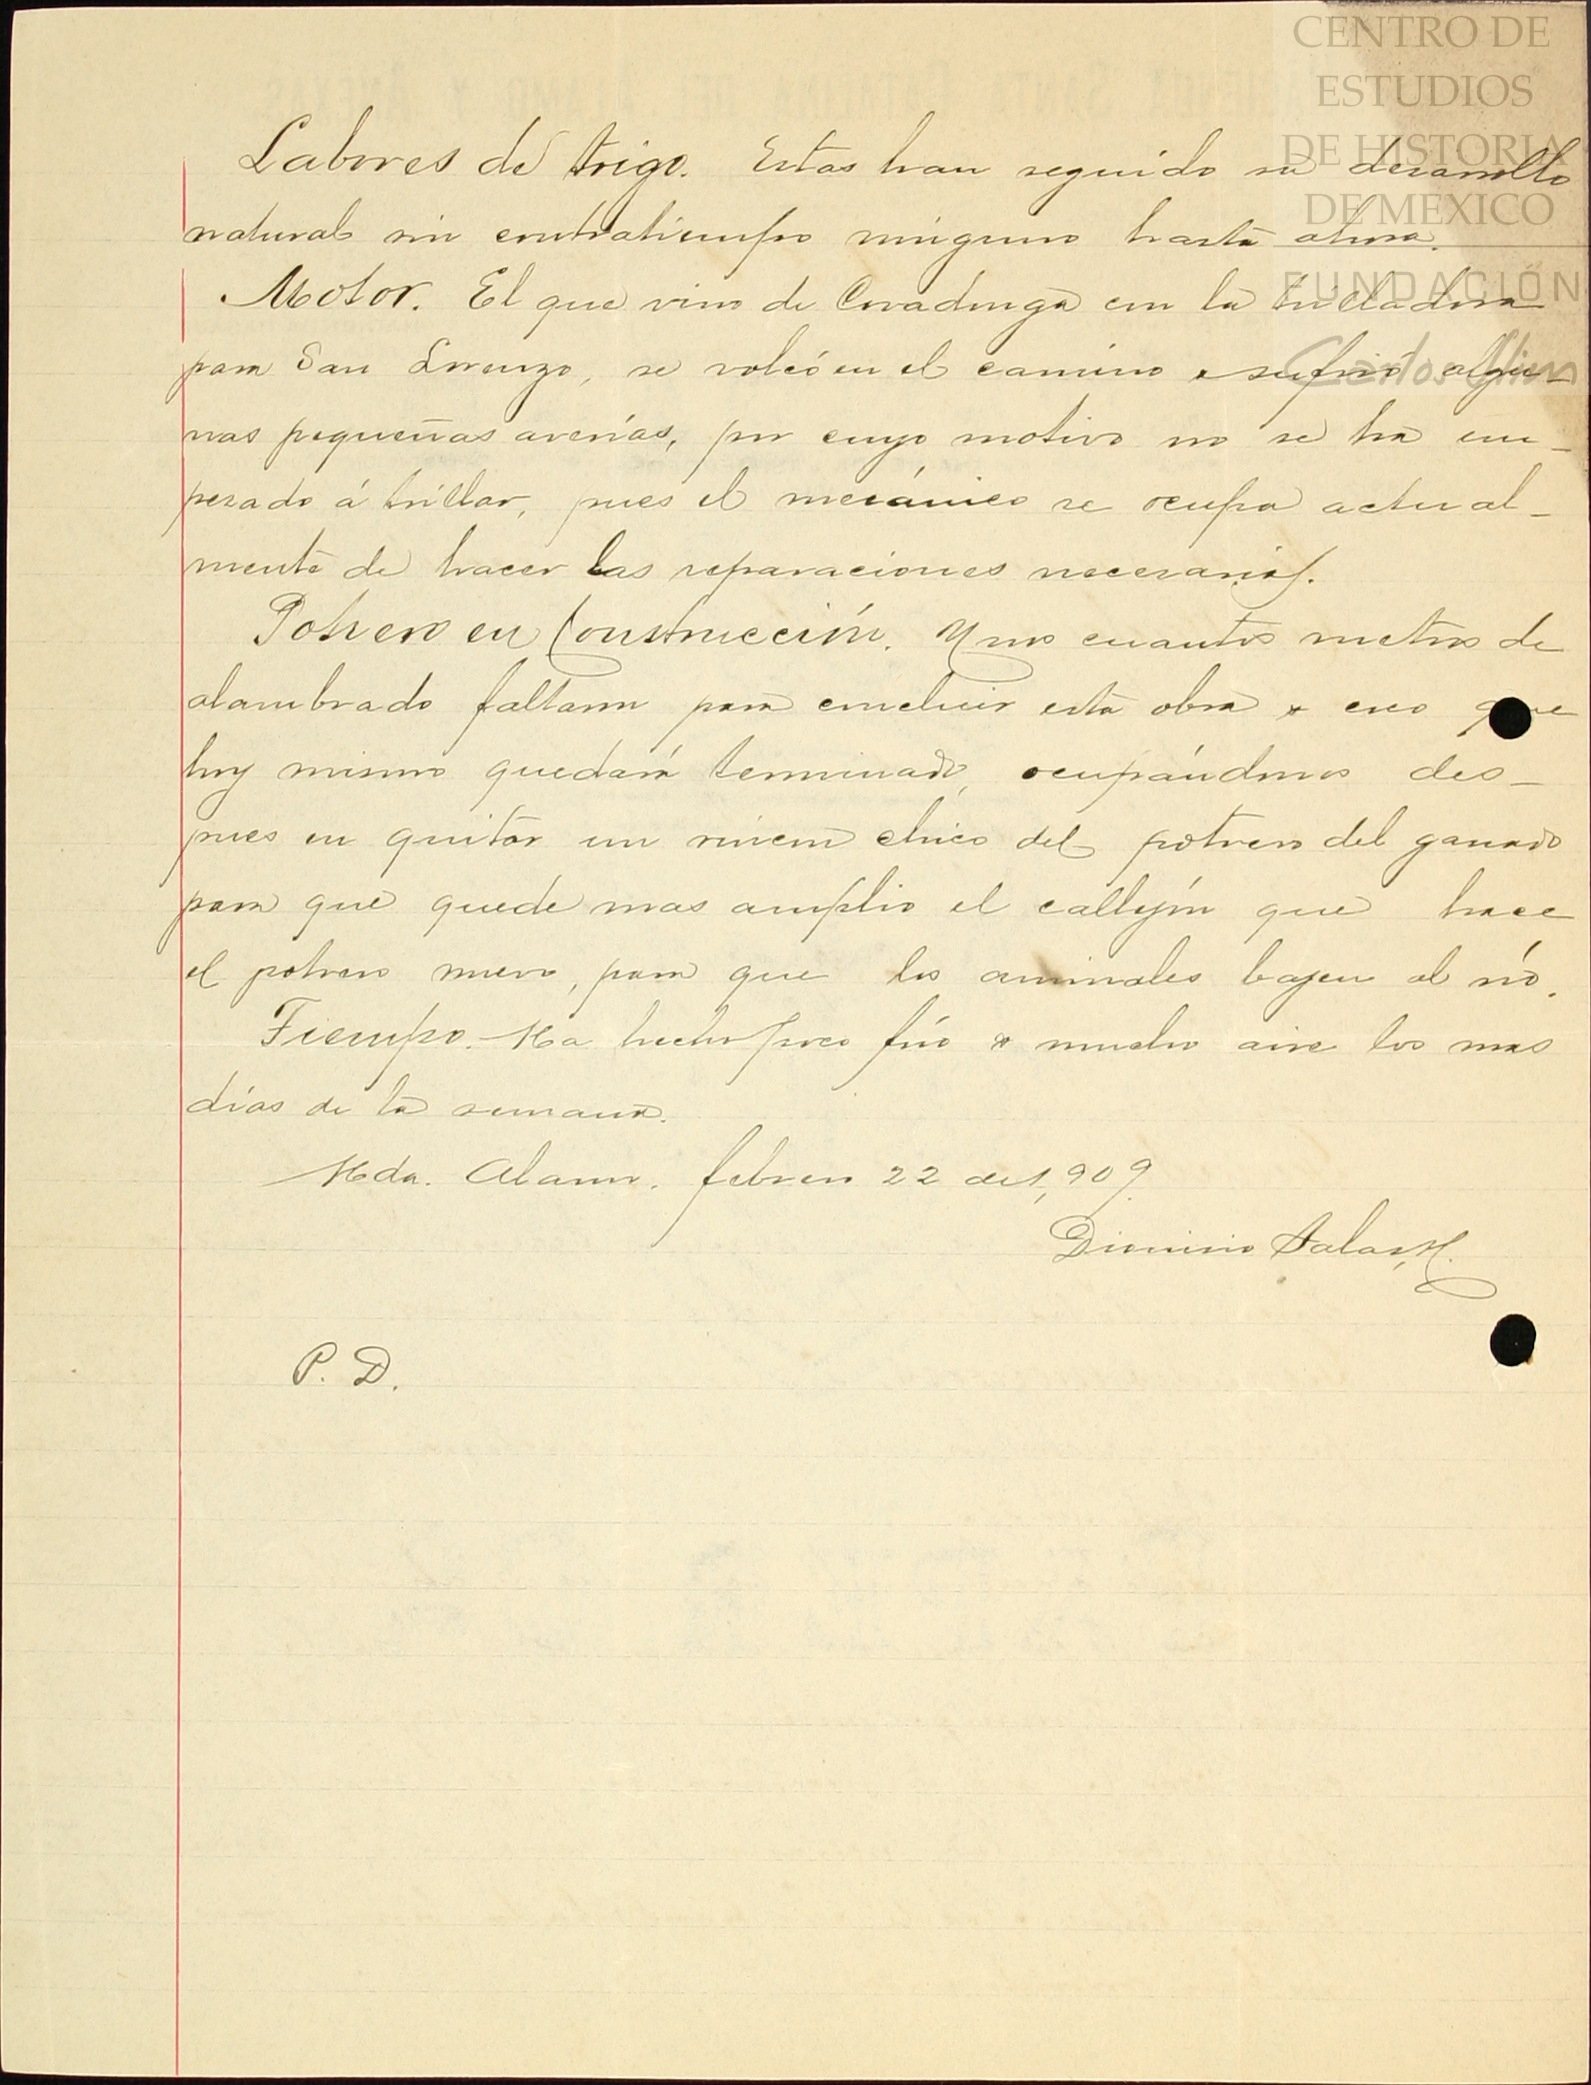 CENTRO DE
ESTUDIOS
DE HISTORIA
DE MEXICO
FUNDACIÓN
Carlos Slim
Labores de trigo. Estas han seguido su desarrollo
natural sin contratiempo ninguno hasta ahora.
Motor. El que vino de Covadonga con la trilladora
para San Lorenzo, se volcó en el camino y sufrió algu-
nas pequeñas averías, por cuyo motivo no se ha em-
pezado á trillar, pues el mecánico se ocupa actual-
mente de hacer las reparaciones necesarias.
Potrero en Construcción. Unos cuantos metros de
alambrado faltaran para concluir esta obra y creo que
hoy mismo quedará terminado, ocupándonos des-
pues en quitar un rincon chico del potrero del ganado
para que quede mas amplio el callejón que hace
el potrero nuevo, para que los animales bajen al río.
Tiempo. Ha hecho poco frío y mucho aire los mas
días de la semana.
Hda. Alamo. febrero 22 de 1,909.
Dionisio Salas, H.
P. D.